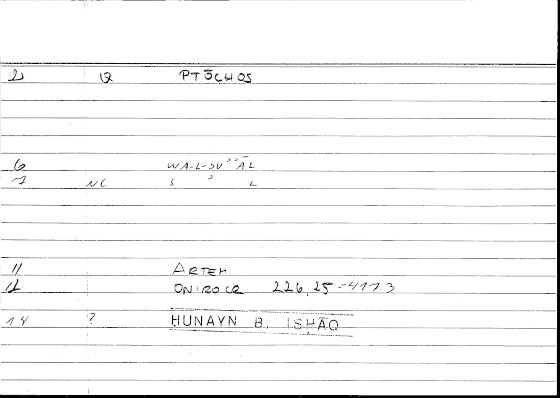 2 Q PTŌCHOS
6 WA-L-SU''ĀL
7 NC S ' L
11 ARTEM
12 ONIROCR 226,25
14 ? HUNAYN B. ISḤĀQ